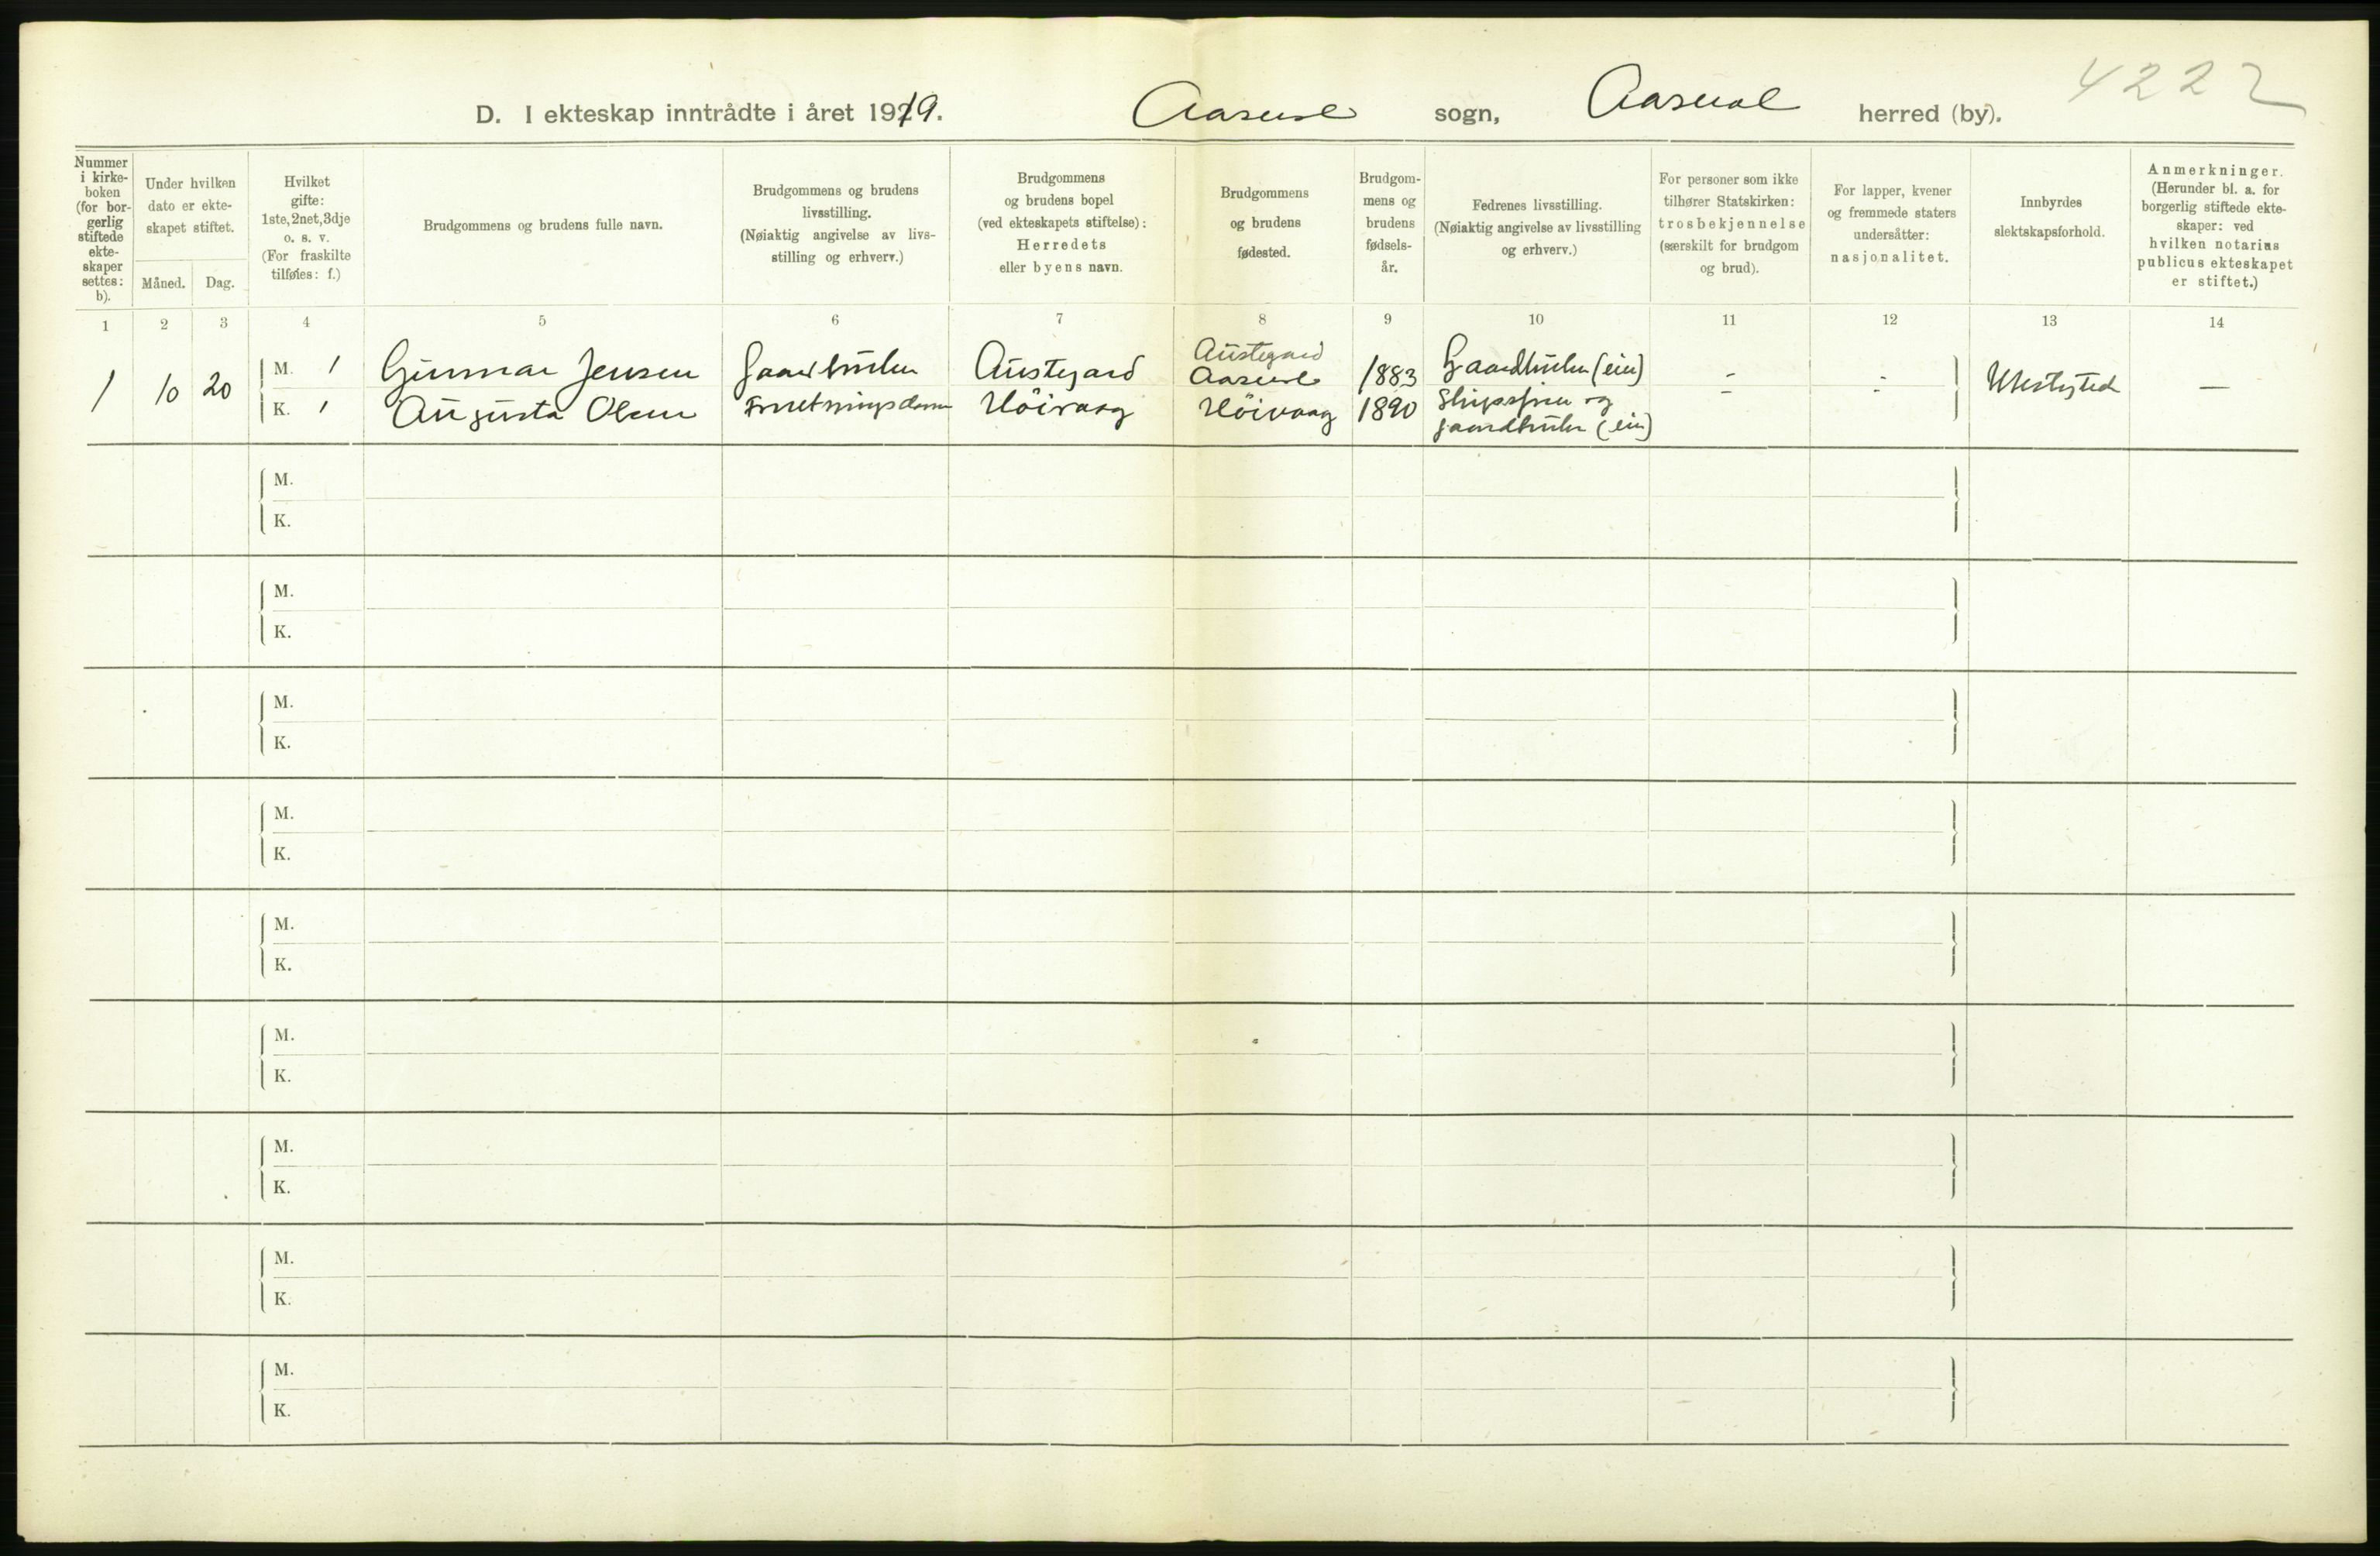 4222
D. I ekteskap inntrådte i året 1919. Aaseral sogn, Aaseral herred (by).
Nummer
i kirke-
boken
(for bor-
gerlig
stiftede
ekte-
skaper
settes:
b).
Under hvilken
dato er ekte-
skapet stiftet.
Måned. Dag.
Hvilket
gifte:
1ste, 2net, 3dje
o. s. v.
(For fraskilte
tilføies: f.)
Brudgommens og brudens fulle navn.
Brudgommens og brudens
livsstilling.
(Nøiaktig angivelse av livs-
stilling og erhverv.)
Brudgommens
og brudens bopel
(ved ekteskapets stiftelse):
Herredets
eller byens navn.
Brudgommens
og brudens
fødested.
Brudgom-
mens og
brudens
fødsels-
år.
Fedrenes livsstilling.
(Nøiaktig angivelse av livsstilling
og erhverv.)
For personer som ikke
tilhører Statskirken:
trosbekjennelse
(særskilt for brudgom
og brud).
For lapper, kvener
og fremmede staters
undersåtter:
nasjonalitet.
Innbyrdes
slektskapsforhold.
Anmerkninger.
(Herunder bl. a. for
borgerlig stiftede ekte-
skaper: ved
hvilken notarius
publicus ekteskapet
er stiftet.)
1 2 3 4 5 6 7 8 9 10 11 12 13 14
1 10 20
M. 1 Gunnar Jensen Gaardbruker Austegard Austegard
Aaseral 1883 Gaardbruker (eier) - - Ubeslegted —
K. 1 Augusta Olsen Forretningsdame Höivaag Höivaag 1890 Skipsfører og - -
gaardbruker (eier)
M.
K.
M.
K.
M.
K.
M.
K.
M.
K.
M.
K.
M.
K.
M.
K.
M.
K.